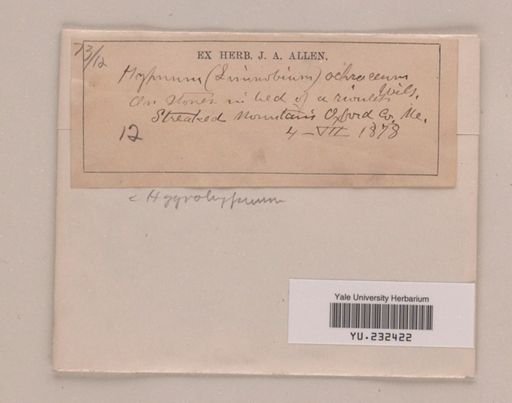 73/12
EX HERB. J. A. ALLEN.
Hypnum (Limnobium) ochraceum
Wils.
On stones in bed of a rivulet
Streaked Mountain Oxford Co. Me.
12
4-VII 1878
< Hygrohypnum
Yale University Herbarium
YU.232422